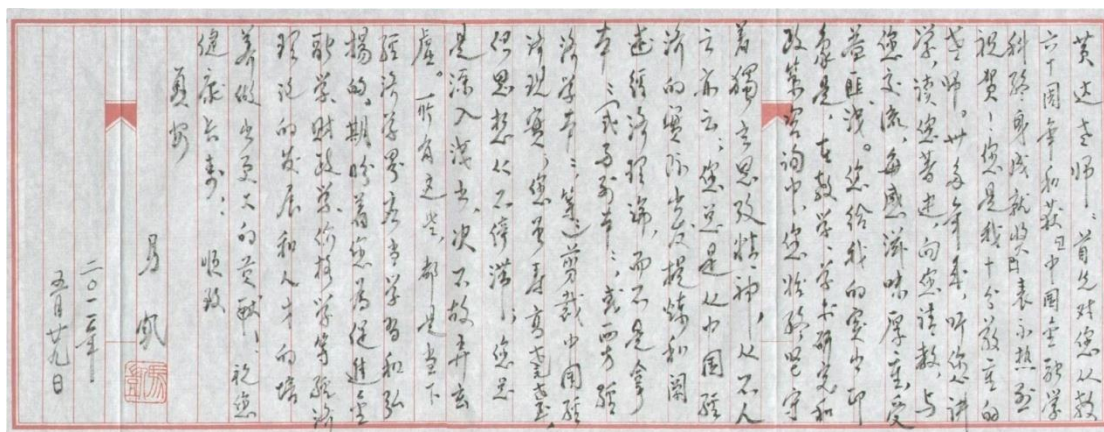 黄达老师：首先对您从教
六十周年和获中国金融学
科终身成就奖表示热烈
祝贺！您是我十分敬重的
老师。卅多年来，听您讲
学，读您著述，向您请教，与
您交流，每感滋味厚重，受
益匪浅。您给我的突出印
象是，在教学、学术研究和
政策咨询中，您始终坚守
着独立思考精神，从不人
云亦云；您总是从中国经
济的实际出发提炼和阐
述经济理论，而不是拿
本《货币银行》，或西方经
济学本本，等剪裁中国经
济现实，您虽寿高
但思想仁不停滞；您总
是深入浅出，决不故弄玄
虚。所有这些，都是当下
经济学界应当学习和弘
扬的。期盼着您为促进金
融学、财政学、价格学等经济
理论的发展和人才的培
养做出更大的贡献！祝您
健康长寿！顺致
夏安
马凯
二〇一一年
五月廿九日